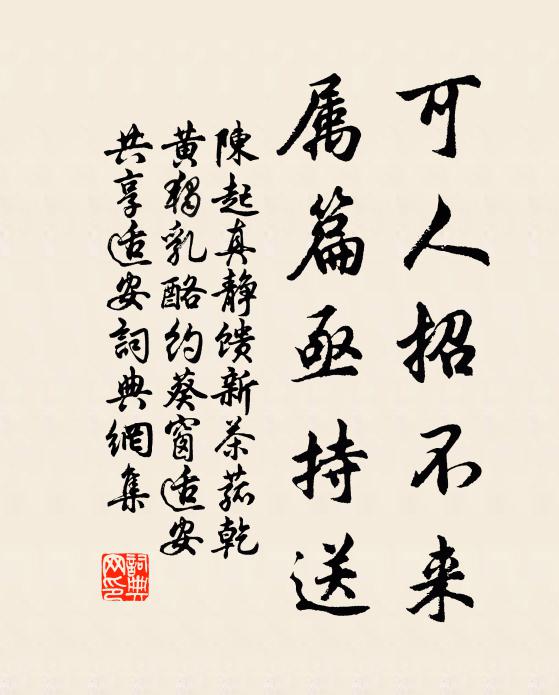 可人招不来
属篇亟持送
陳起真静馈新茶菰乾
黄独乳酪约葵窗适安
共享适安詞典網集
詞典网印